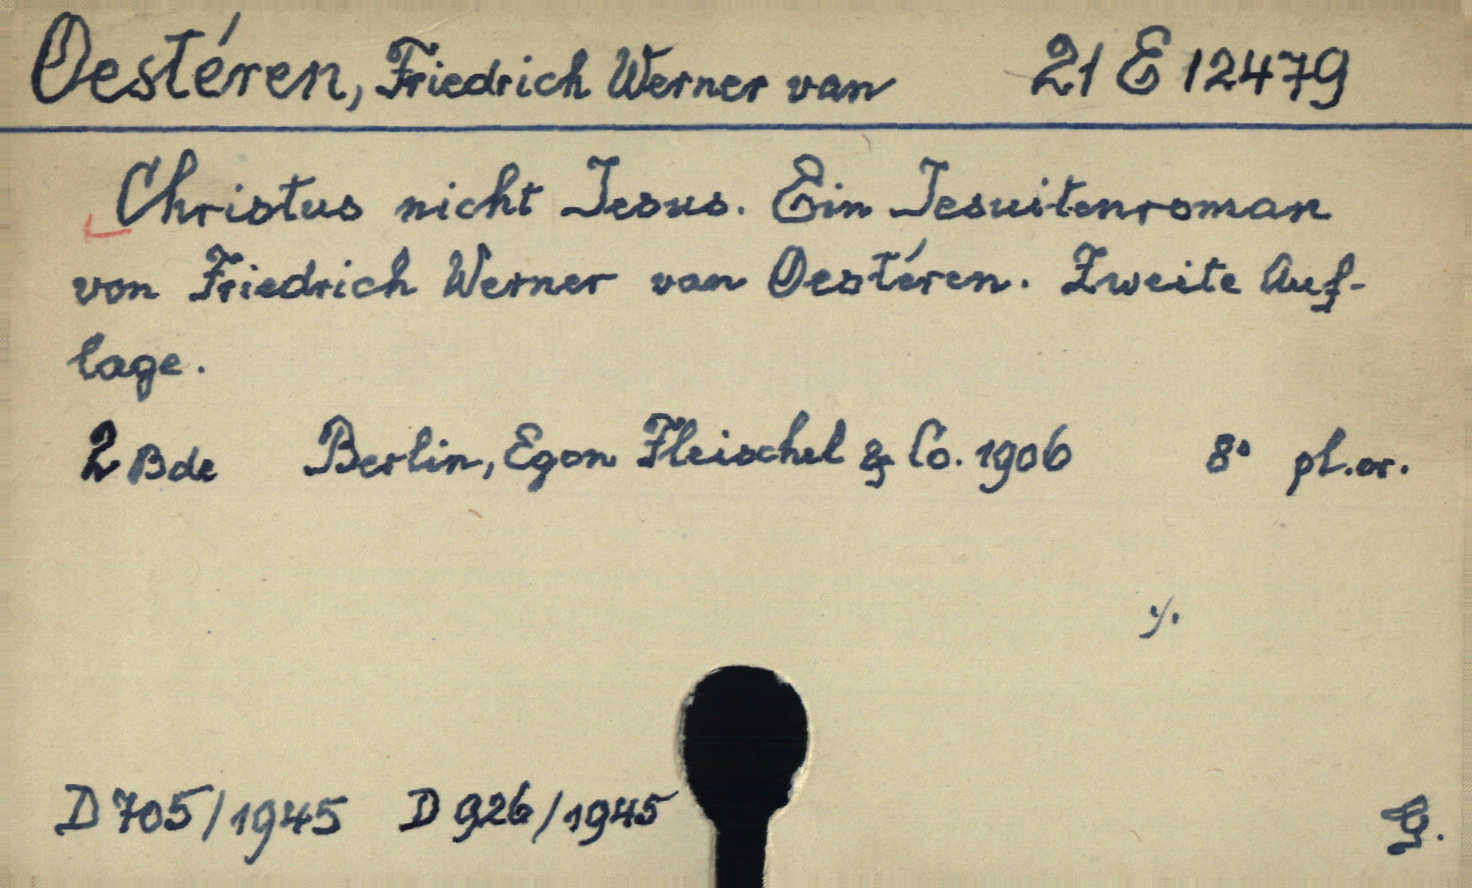 Oestéren, Friedrich Werner van 21 E 12479
Christus nicht Jesus. Ein Jesuitenroman
von Friedrich Werner van Oestéren. Zweite Auf-
lage.
2 Bde Berlin, Egon Fleischel & Co. 1906 8° pl.or.
./.
D 705/1945 D 926/1945